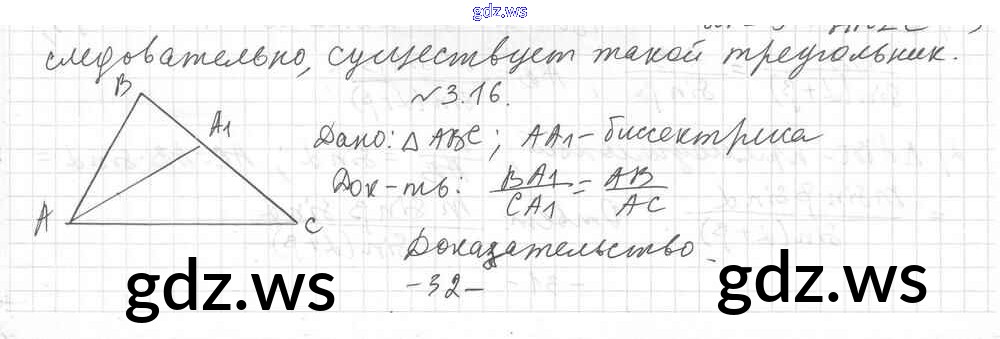 gdz.ws
следовательно, существует такой треугольник.
№3.16.
B
A1
A
C
Дано: △ABC; AA1-биссектриса
Док-ть: BA1/CA1 = AB/AC
Доказательство.
-32-
gdz.ws gdz.ws